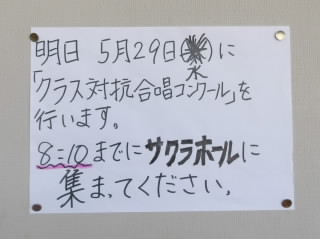 明日 5月29日(水)に
「クラス対抗合唱コンクール」を
行います。
8:10までにサクラホールに
集まってください。